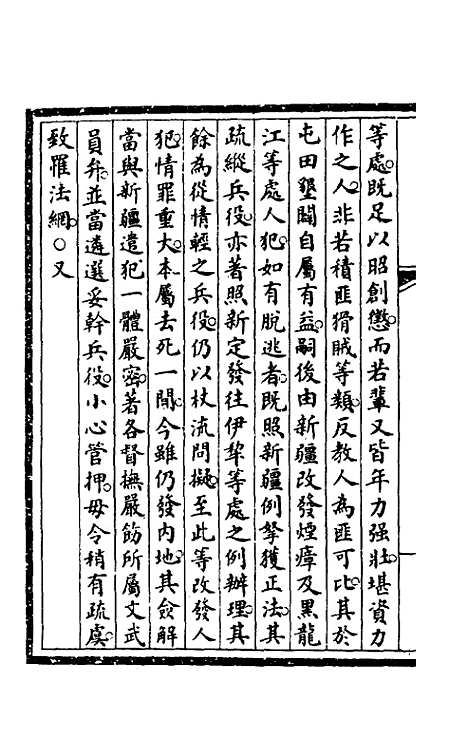 等處既足以昭創懲而若輩又皆年力强壯堪資力
作之人非若積匪猾賊等類反教人為匪可比其於
屯田墾闢自屬有益嗣後由新疆改發煙瘴及黑龍
江等處人犯如有脫逃者既照新疆例拏獲正法其
疏縱兵役亦著照新定發往伊犂等處之例辦理其
餘為從情輕之兵役仍以杖流問擬至此等改發人
犯情罪重大本屬去死一間今雖仍發內地其僉解
當與新疆遣犯一體嚴密著各督撫嚴飭所屬文武
員弁並當遴選妥幹兵役小心管押毋令稍有疏虞
致罹法網○又